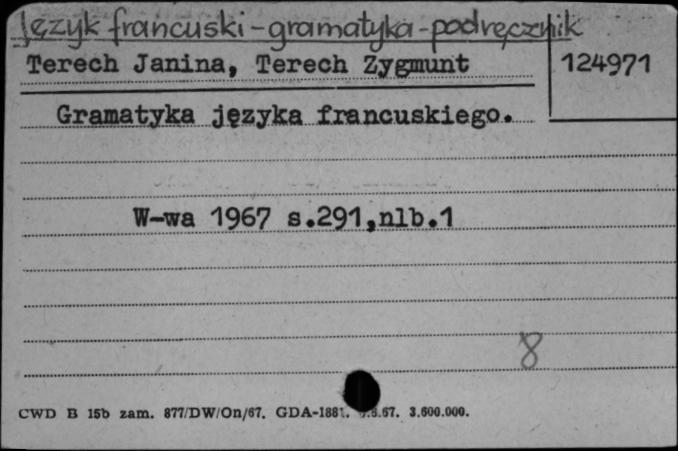 Język francuski-gramatyka-podręcznik
Terech Janina, Terech Zygmunt
124971
Gramatyka języka francuskiego.
W-wa 1967 s.291,nlb.1
8
CWD B 15b zam. 877/DW/On/67. GDA-1881. .67. 3.600.000.